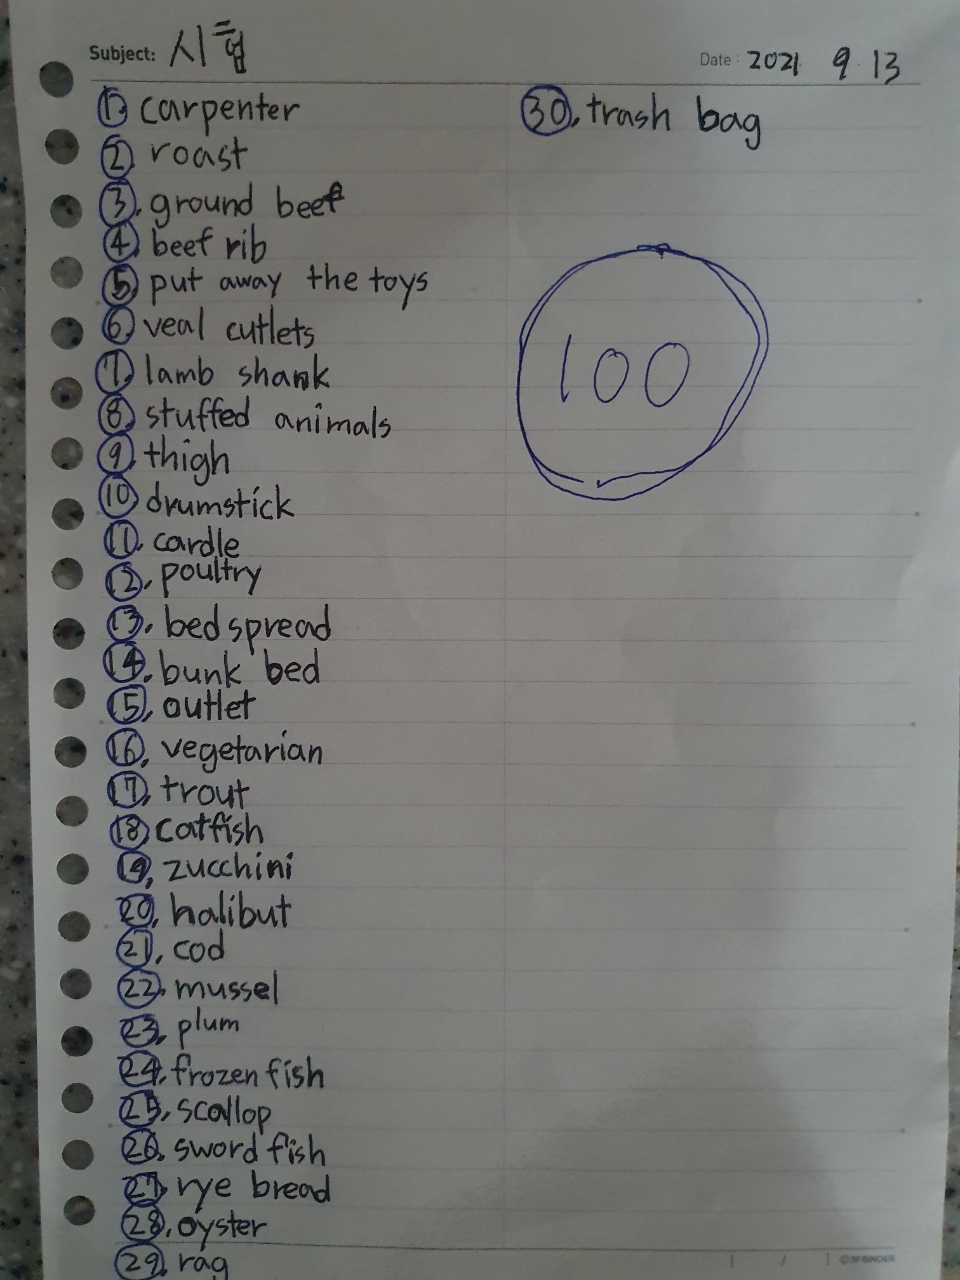 Subject: 시험
Date: 2021 9 13
1. carpenter
2. roast
3. ground beef
4. beef rib
5. put away the toys
6. veal cutlets
7. lamb shank
8. stuffed animals
9. thigh
10. drumstick
11. cardle
12. poultry
13. bed spread
14. bunk bed
15. outlet
16. vegetarian
17. trout
18. catfish
19. zucchini
20. halibut
21. cod
22. mussel
23. plum
24. frozen fish
25. scallop
26. sword fish
27. rye bread
28. oyster
29. rag
30. trash bag
100